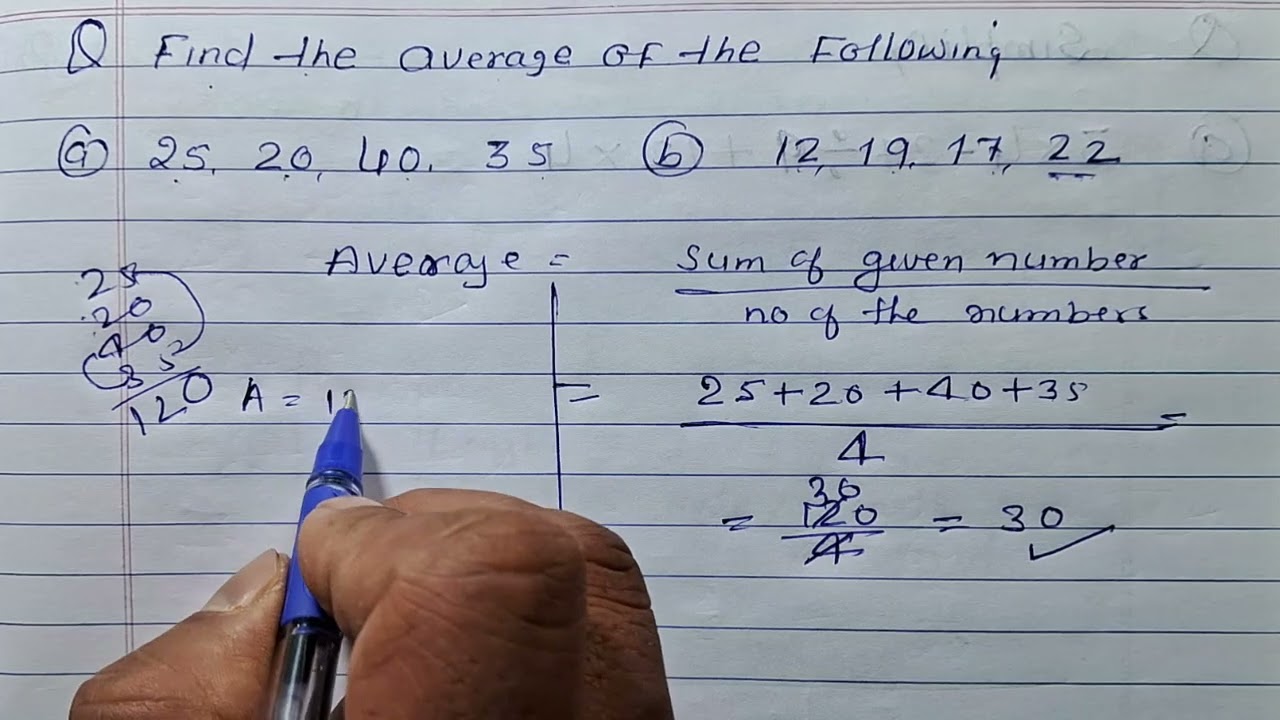 Q Find the average of the Following
(a) 25, 20, 40, 35 (b) 12, 19, 17, 22
Average = Sum of given number
no of the numbers
25
20
40
35
120
A = 1
= 25+20+40+35 =
4
= 30
120 = 30
4